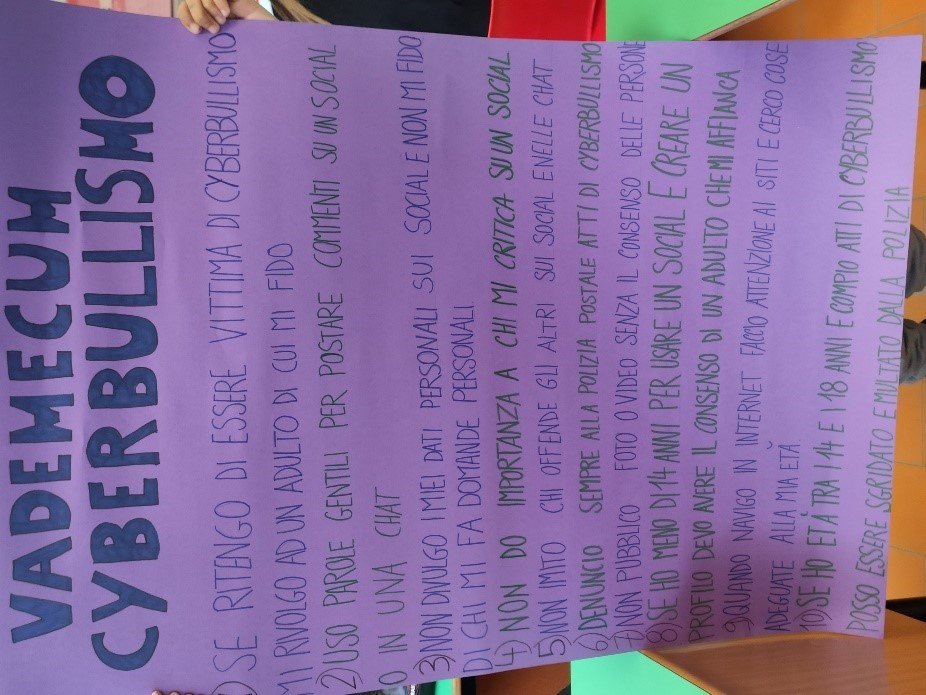 VADEMECUM
CYBERBULLISMO
1) SE RITENGO DI ESSERE VITTIMA DI CYBERBULLISMO
MI RIVOLGO AD UN ADULTO DI CUI MI FIDO
2) USO PAROLE GENTILI PER POSTARE COMMENTI SU UN SOCIAL
O IN UNA CHAT
3) NON DIVULGO I MIEI DATI PERSONALI SUI SOCIAL E NON MI FIDO
DI CHI MI FA DOMANDE PERSONALI.
4) NON DO IMPORTANZA A CHI MI CRITICA SU UN SOCIAL
5) NON IMITO CHI OFFENDE GLI ALTRI SUI SOCIAL E NELLE CHAT
6) DENUNCIO SEMPRE ALLA POLIZIA POSTALE ATTI DI CYBERBULLISMO
7) NON PUBBLICO FOTO O VIDEO SENZA IL CONSENSO DELLE PERSONE
8) SE HO MENO DI 14 ANNI PER USARE UN SOCIAL E CREARE UN
PROFILO DEVO AVERE IL CONSENSO DI UN ADULTO CHE MI AFFIANCA
9) QUANDO NAVIGO IN INTERNET FACCIO ATTENZIONE AI SITI E CERCO COSE
ADEGUATE ALLA MIA ETÀ.
10) SE HO ETÀ TRA I 14 E I 18 ANNI E COMPIO ATTI DI CYBERBULLISMO
POSSO ESSERE SGRIDATO E MULTATO DALLA POLIZIA